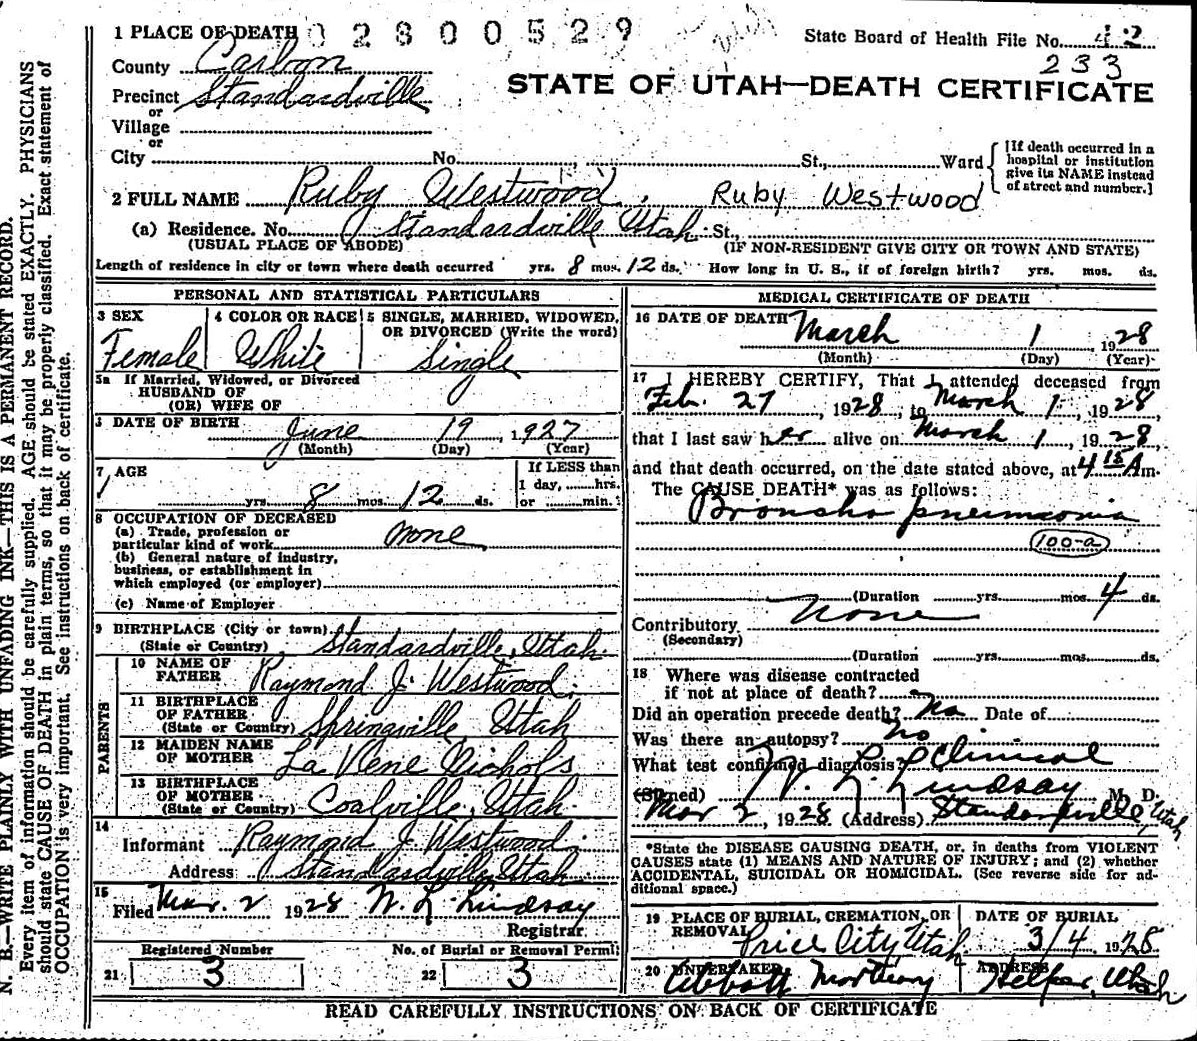 1 PLACE OF DEATH 02800529 State Board of Health File No. 42
233
County Carbon
STATE OF UTAH—DEATH CERTIFICATE
Precinct Standardville
or
Village
or
City No. , St., Ward
[If death occurred in a hospital or institution give its NAME instead of street and number.]
2 FULL NAME Ruby Westwood, Ruby Westwood
(a) Residence. No. Standardville Utah St.,
(USUAL PLACE OF ABODE) (IF NON-RESIDENT GIVE CITY OR TOWN AND STATE)
Length of residence in city or town where death occurred yrs. 8 mos. 12 ds. How long in U. S., if of foreign birth? yrs. mos. ds.
PERSONAL AND STATISTICAL PARTICULARS
3 SEX
Female
4 COLOR OR RACE
White
5 SINGLE, MARRIED, WIDOWED,
OR DIVORCED (Write the word)
Single
5a If Married, Widowed, or Divorced
HUSBAND OF
(OR) WIFE OF
DATE OF BIRTH June 19, 1927
(Month) (Day) (Year)
7 AGE
yrs. 8 mos. 12 ds.
If LESS than
1 day, hrs.
or min.
8 OCCUPATION OF DECEASED
(a) Trade, profession or
particular kind of work none
(b) General nature of industry,
business, or establishment in
which employed (or employer)
(c) Name of Employer
9 BIRTHPLACE (City or town)
(State or Country) Standardville, Utah.
PARENTS
10 NAME OF
FATHER Raymond J. Westwood.
11 BIRTHPLACE
OF FATHER
(State or Country) Springville, Utah
12 MAIDEN NAME
OF MOTHER La Vene Nichols
13 BIRTHPLACE
OF MOTHER
(State or Country) Coalville, Utah.
14
Informant Raymond J. Westwood.
Address Standardville, Utah
15
Filed Mar. 2 1928 W. L. Lindsay
Registrar
Registered Number No. of Burial or Removal Permit
21 3 22 3
MEDICAL CERTIFICATE OF DEATH
16 DATE OF DEATH March 1, 1928
(Month) (Day) (Year)
17 I HEREBY CERTIFY, That I attended deceased from
Feb. 27, 1928, to March 1, 1928,
that I last saw her alive on March 1, 1928,
and that death occurred, on the date stated above, at 4 15 A m.
The CAUSE DEATH* was as follows:
Broncho pneumonia
100-a
(Duration yrs. mos. 4 ds.
Contributory None
(Secondary)
(Duration yrs. mos. ds.
18 Where was disease contracted
if not at place of death?
Did an operation precede death? No Date of
Was there an autopsy? No
What test confirmed diagnosis? Clinical
(Signed) W. L. Lindsay M. D.
Mar 2, 1928 (Address) Standardville, Utah
*State the DISEASE CAUSING DEATH, or, in deaths from VIOLENT
CAUSES state (1) MEANS AND NATURE OF INJURY; and (2) whether
ACCIDENTAL, SUICIDAL OR HOMICIDAL. (See reverse side for ad-
ditional space.)
19 PLACE OF BURIAL, CREMATION, OR
REMOVAL Price City Utah
DATE OF BURIAL
3/4 1928
20 UNDERTAKER
Abbott Mortuary
ADDRESS
Helper, Utah
READ CAREFULLY INSTRUCTIONS ON BACK OF CERTIFICATE
N. B.—WRITE PLAINLY WITH UNFADING INK—THIS IS A PERMANENT RECORD.
Every item of information should be carefully supplied. AGE should be stated EXACTLY. PHYSICIANS
should state CAUSE OF DEATH in plain terms, so that it may be properly classified. Exact statement of
OCCUPATION is very important. See instructions on back of certificate.